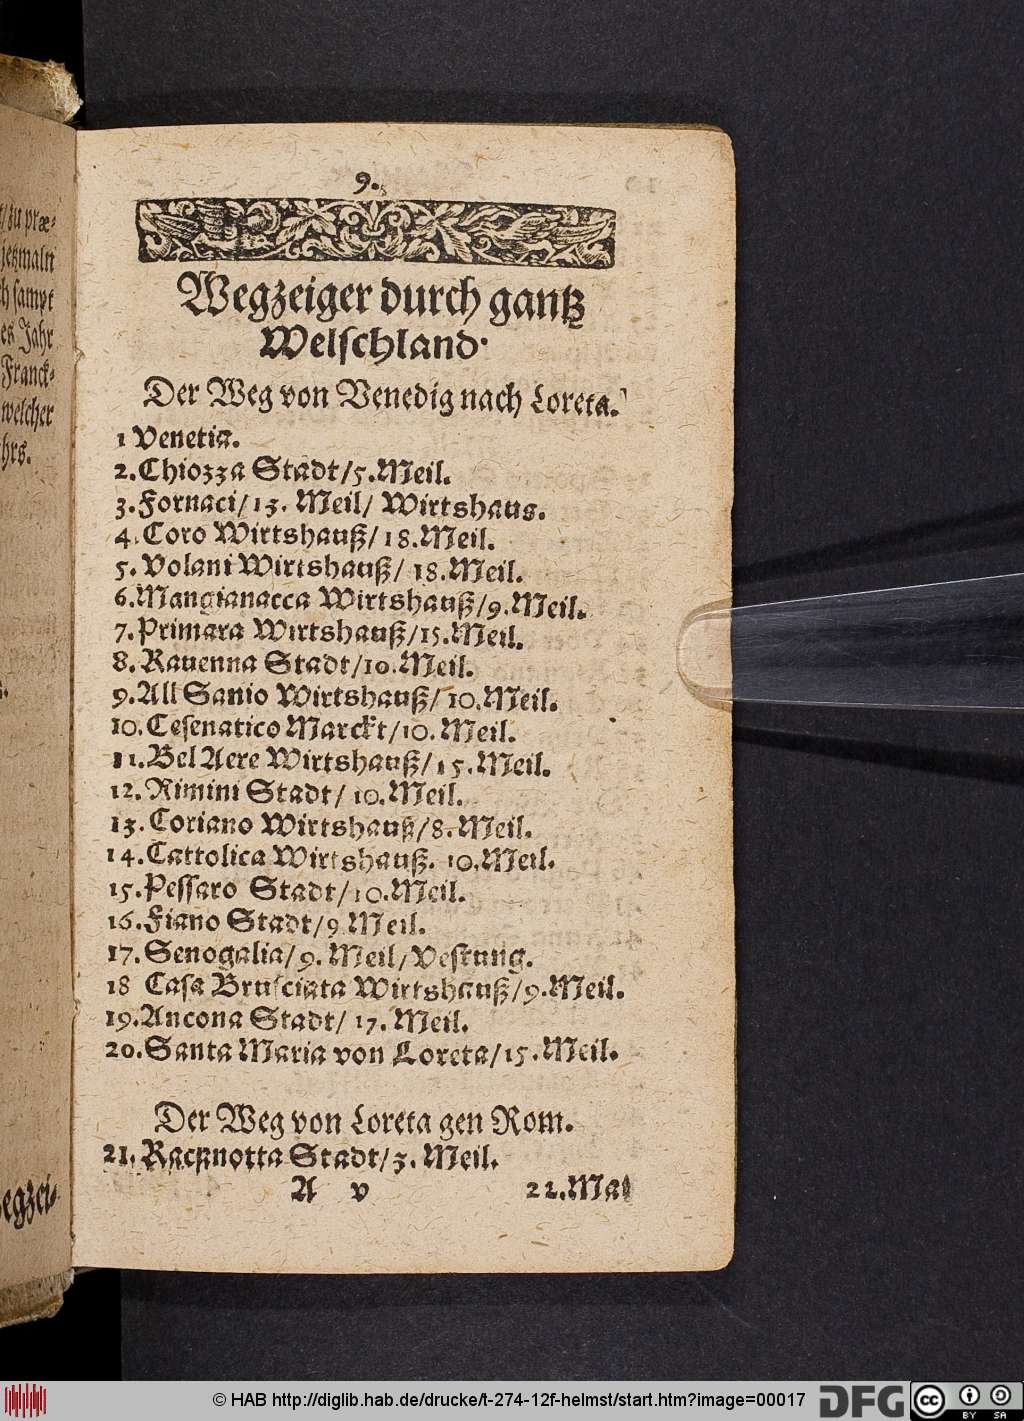 t/zu præ-
jetzmaln
ch sampt
es Jahr
Franck-
welcher
hrs.
egzei-
9.
Wegzeiger durch gantz
Welschland.
Der Weg von Venedig nach Loreta.
1 Venetia.
2. Chiozza Stadt/5. Meil.
3. Fornaci/13. Meil/ Wirtshaus.
4. Coro Wirtshauß/18. Meil.
5. Volani Wirtshauß/ 18. Meil.
6. Mangianacca Wirtshauß/9. Meil.
7. Primara Wirtshauß/15. Meil.
8. Rauenna Stadt/10. Meil.
9. All Sanio Wirtshauß/ 10. Meil.
10. Cesenatico Marckt/10. Meil.
11. Bel Aere Wirtshauß/15. Meil.
12. Rimini Stadt/ 10. Meil.
13. Coriano Wirtshauß/8. Meil.
14. Cattolica Wirtshauß. 10. Meil.
15. Pessaro Stadt/10. Meil.
16. Fiano Stadt/9 Meil.
17. Senogalia/9. Meil/Vestung.
18 Casa Brusciata Wirtshauß/9. Meil.
19. Ancona Stadt/ 17. Meil.
20. Santa Maria von Loreta/15. Meil.
Der Weg von Loreta gen Rom.
21. Stadt/3. Meil.
A v 22. Ma
© HAB http://diglib.hab.de/drucke/t-274-12f-helmst/start.htm?image=00017 DFG cc BY SA